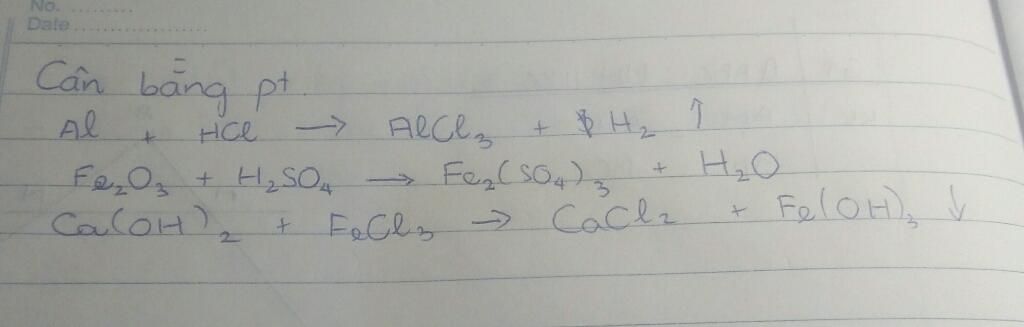 No. ..........
Date......................
Cân bằng pt
Al + HCl → AlCl₃ + H₂ ↑
Fe₂O₃ + H₂SO₄ → Fe₂(SO₄)₃ + H₂O
Ca(OH)₂ + FeCl₃ → CaCl₂ + Fe(OH)₃ ↓